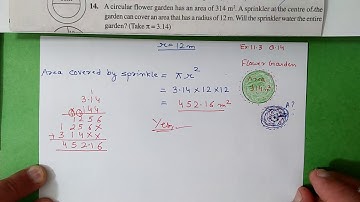 14. A circular flower garden has an area of 314 m². A sprinkler at the centre of the
garden can cover an area that has a radius of 12 m. Will the sprinkler water the entire
garden? (Take π = 3.14)
r = 12m
Ex 11.3 Q.14
Flower Garden
Area covered by sprinkle = πr²
= 3.14 × 12 × 12
= 452.16 m²
Yes
Area
314 m²
A?
1
3.14
144
1256
1256×
+ 314××
452.16